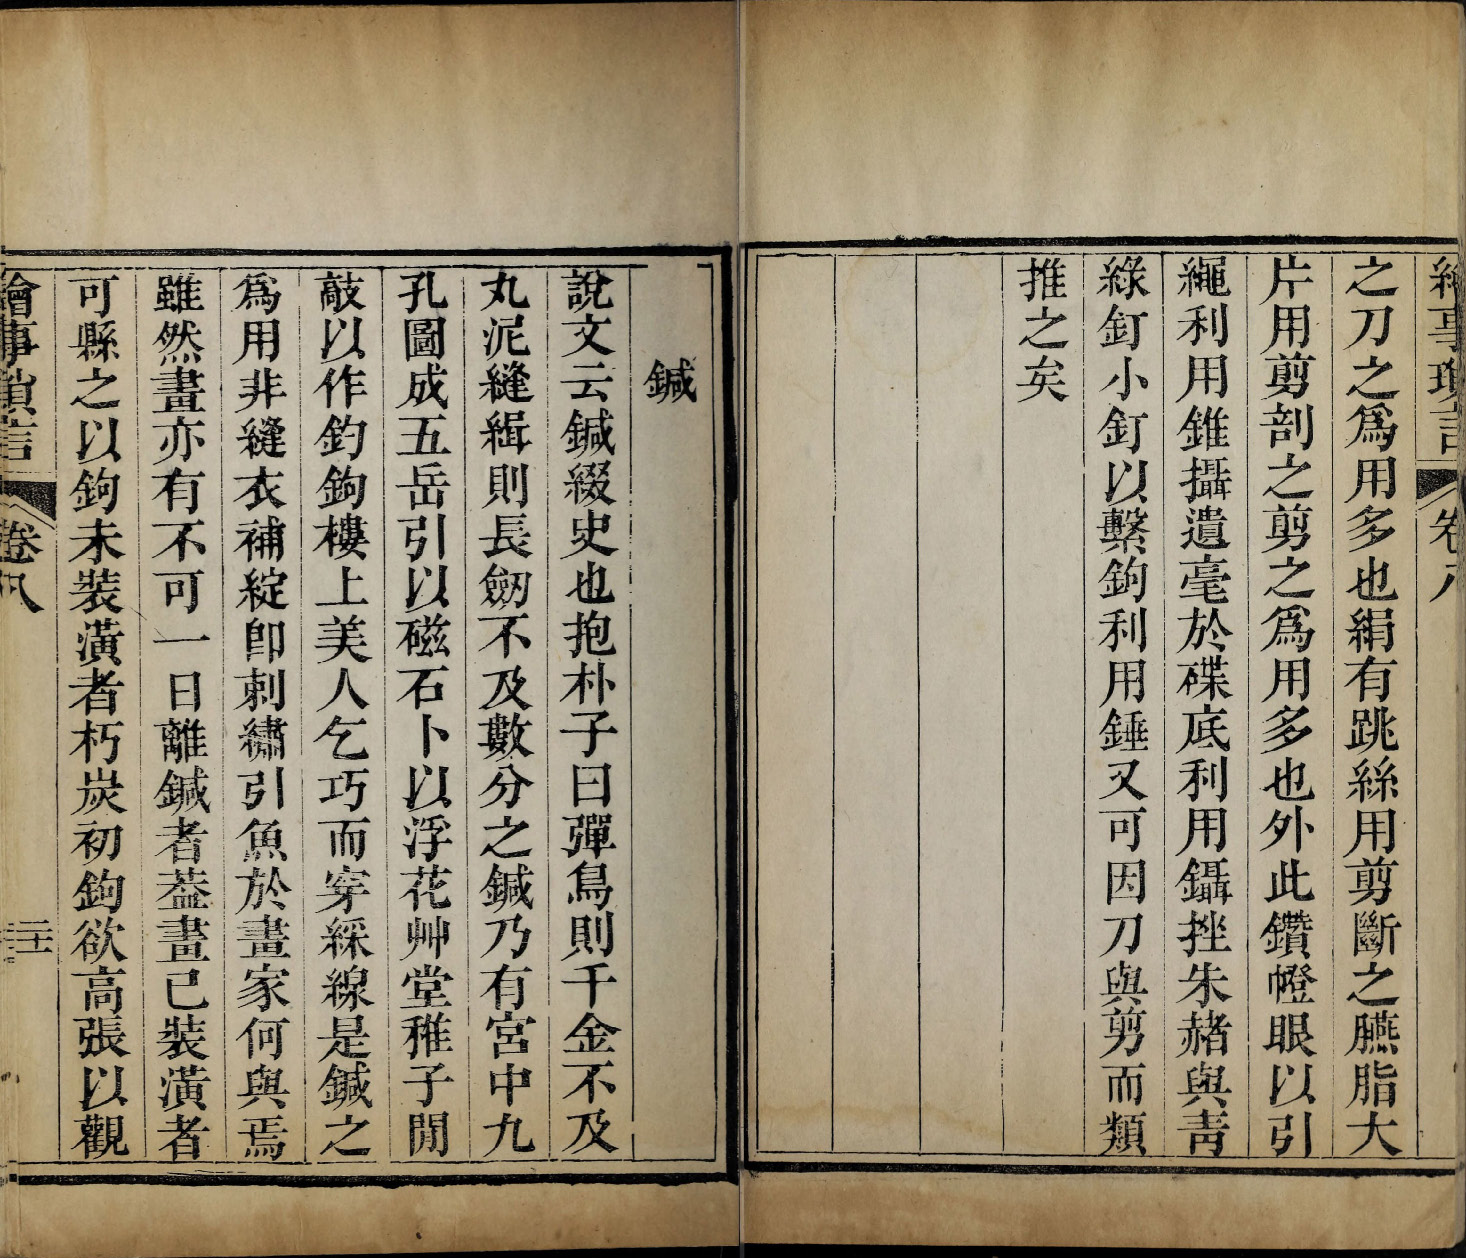 繪事瑣言 卷八
之刀之爲用多也絹有跳絲用剪斷之臙脂大
片用剪剖之剪之爲用多也外此鑽幐眼以引
繩利用錐攝遺毫於碟底利用鑷挫朱赭與靑
綠釘小釘以繫鉤利用錘又可因刀與剪而類
推之矣
鍼
說文云鍼綴衣也抱朴子曰彈鳥則千金不及
丸泥縫緝則長劒不及數分之鍼乃有宮中九
孔圖成五岳引以磁石卜以浮花艸堂稚子閒
敲以作釣鉤樓上美人乞巧而穿綵線是鍼之
爲用非縫衣補綻卽刺繡引魚於畫家何與焉
雖然畫亦有不可一日離鍼者葢畫已裝潢者
可縣之以鉤未裝潢者朽炭初鉤欲高張以觀
繪事瑣言 卷八